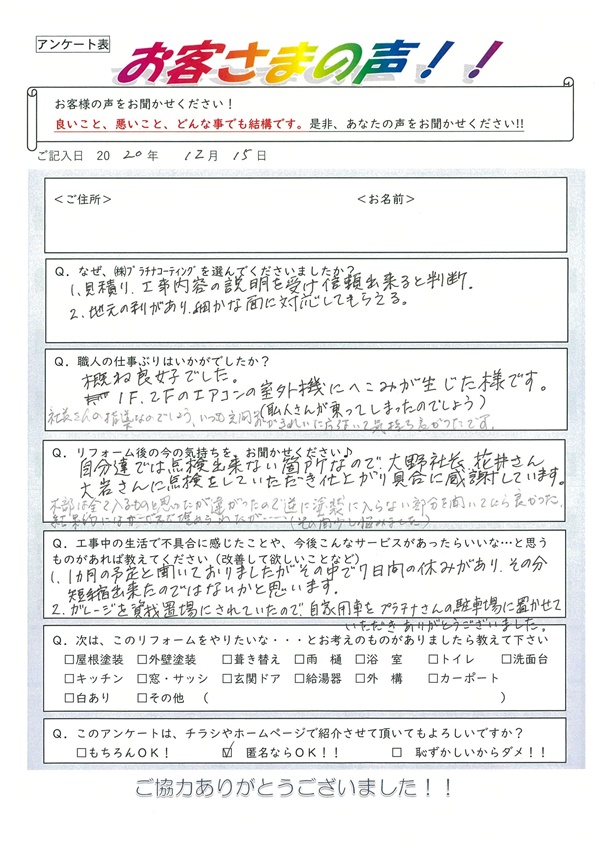 アンケート表
お客さまの声！！
お客様の声をお聞かせください！
良いこと、悪いこと、どんな事でも結構です。是非、あなたの声をお聞かせください!!
ご記入日 20 20 年 12 月 15 日
＜ご住所＞ ＜お名前＞
Q．なぜ、㈱ﾌﾟﾗﾁﾅｺｰﾃｨﾝｸﾞを選んでくださいましたか？
1、見積り、工事内容の説明を受け信頼出来ると判断．
2、地元の利があり、細かな面に対応してもらえる。
Q．職人の仕事ぶりはいかがでしたか？
概ね良好でした。
1F、2Fのエアコンの室外機にへこみが生じた様です。
(職人さんが乗ってしまったのでしょう)
社長さんの指導なのでしょう、いつも玄関
気持ち良かったです。
Q．リフォーム後の今の気持ちを、お聞かせください♪
自分達では点検出来ない箇所なので、大野社長、花井さん
大岩さんに点検をしていただき仕上がり具合に感謝しています。
木部は全て入るものと思ったが違がったので逆に塗装に入らない部分を聞いてたら良かった、
結果的にはサービスで塗られたが……(その間少し悩みました)
Q．工事中の生活で不具合に感じたことや、今後こんなサービスがあったらいいな…と思う
ものがあれば教えてください（改善して欲しいことなど）
1、1カ月の予定と聞いておりましたがその中で7日間の休みがあり、その分
短縮出来たのではないかと思います。
2、ガレージを資機置場にされていたので、自家用車をプラチナさんの駐車場に置かせて
いただきありがとうございました。
Q．次は、このリフォームをやりたいな・・・とお考えのものがありましたら教えて下さい
□屋根塗装 □外壁塗装 □葺き替え □雨 樋 □浴 室 □トイレ □洗面台
□キッチン □窓・サッシ □玄関ドア □給湯器 □外 構 □カーポート
□白あり □その他（ ）
Q．このアンケートは、チラシやホームページで紹介させて頂いてもよろしいですか？
□もちろんOK！ ☑ 匿名ならOK！！ □ 恥ずかしいからダメ！！
ご協力ありがとうございました！！